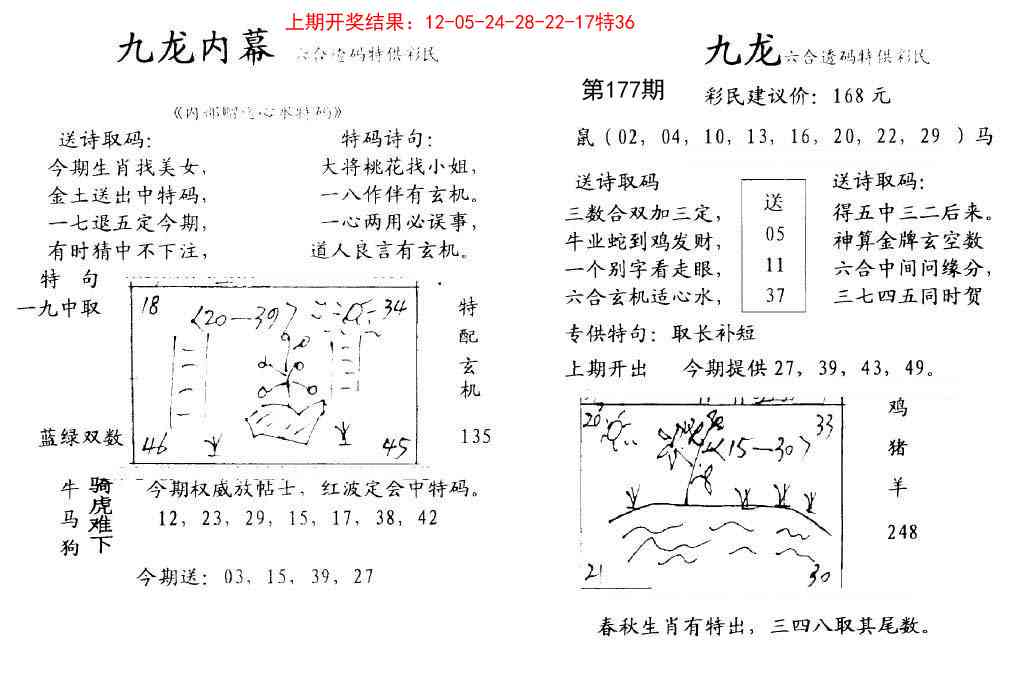 上期开奖结果：12-05-24-28-22-17特36
九龙内幕 六合透码特供彩民
送诗取码：
今期生肖找美女，
金土送出中特码，
一七退五定今期，
有时猜中不下注，
特码诗句：
大将桃花找小姐，
一八作伴有玄机。
一心两用必误事，
道人良言有玄机。
特 句
一九中取
蓝绿双数
18
〈20—39〉
34
46
45
特
配
玄
机
135
牛
马
狗
骑
虎
难
下
今期权威放帖士，红波定会中特码。
12，23，29，15，17，38，42
今期送：03，15，39，27
九龙六合透码特供彩民
第177期
彩民建议价：168元
鼠（02，04，10，13，16，20，22，29 ）马
送诗取码
三数合双加三定，
牛业蛇到鸡发财，
一个别字看走眼，
六合玄机适心水，
送
05
11
37
送诗取码：
得五中三二后来。
神算金牌玄空数
六合中间问缘分，
三七四五同时贺
专供特句：取长补短
上期开出 今期提供27，39，43，49。
20
〈15—30〉
33
21
30
鸡
猪
羊
248
春秋生肖有特出，三四八取其尾数。